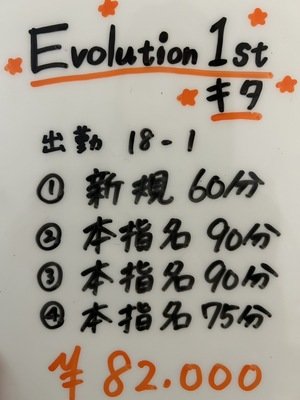 Evolution 1st
キタ
出勤 18-1
① 新規 60分
② 本指名 90分
③ 本指名 90分
④ 本指名 75分
¥82.000